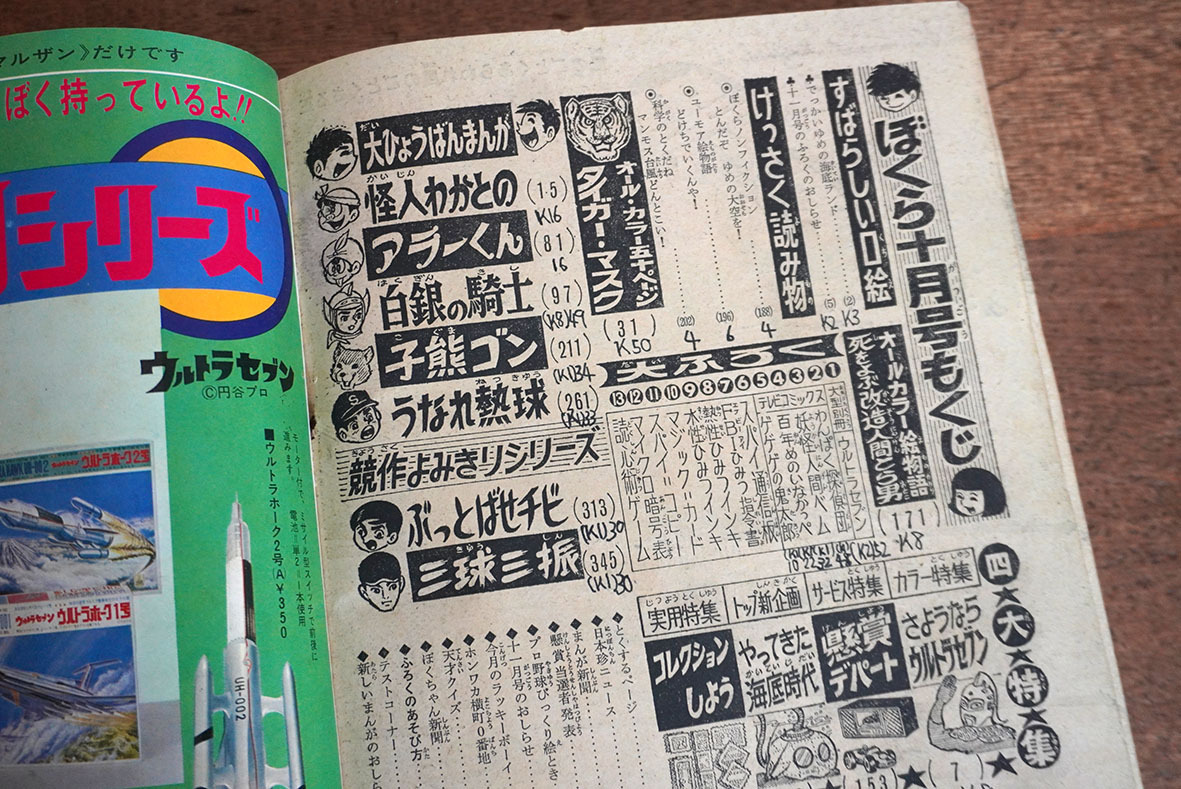 マルザン》だけです
ぼく持っているよ!!
シリーズ
ウルトラセブン
©円谷プロ
モーター付で、ミサイル型スイッチで前後に
進みます。 電池=単2=1本使用
■ウルトラホーク2号(A)¥350
ウルトラセブン ウルトラホーク2号
ウルトラセブン ウルトラホーク1号
UH-002
ぼくら十月号もくじ
すばらしい口絵
♣でっかいゆめの海底ランド
(2)
K3
♣十一月号のふろくのおしらせ
(5)
K2
けっさく読み物
◎ぼくらノンフィクション
とんだぞ ゆめの大空を!
(188)
4
◎ユーモア絵物語
どけちでいくんや!
(196)
6
◎科学のとくだね
マンモス台風どんとこい!
(202)
4
オール・カラー五十ページ
タイガー・マスク
(31)
K50
大ひょうばんまんが
怪人わかとの
(15)
K16
アラーくん
(81)
16
白銀の騎士
(97)
(K8)49
子熊ゴン
(211)
(K)34
うなれ熱球
(261)
競作よみきりシリーズ
ぶっとばせチビ
(313)
(K)30
三球三振
(345)
(K)30
オールカラー絵物語
死をよぶ改造人間とら男
(171)
K8
大ふろく
①大型別冊 ウルトラセブン
②わんぱく探偵団
③妖怪人間ベム
④百年めのいなかっペ
⑤ゲゲゲの鬼太郎
テレビコミックス
⑥スパイ通信板
⑦人間ひみつ指令書
⑪マジックカード
⑫スパイコピー
⑬読心術ゲーム
四★大★特★集
カラー特集
さようなら
ウルトラセブン
(7)
サービス特集
懸賞
デパート
(153)
トップ新企画
やってきた
海底時代
実用特集
コレクション
しよう
♦とくするページ
♦日本珍ニュース
♦まんが新聞
♦懸賞当選者発表
♦プロ野球びっくり絵とき
♦十一月号のおしらせ
♦今月のラッキーボーイ
♦ホンワカ横町0番地
♦天才クイズ
♦ぼくちゃん新聞
♦ふろくのあそび方
♦テストコーナー
♦新しいまんがのおしら